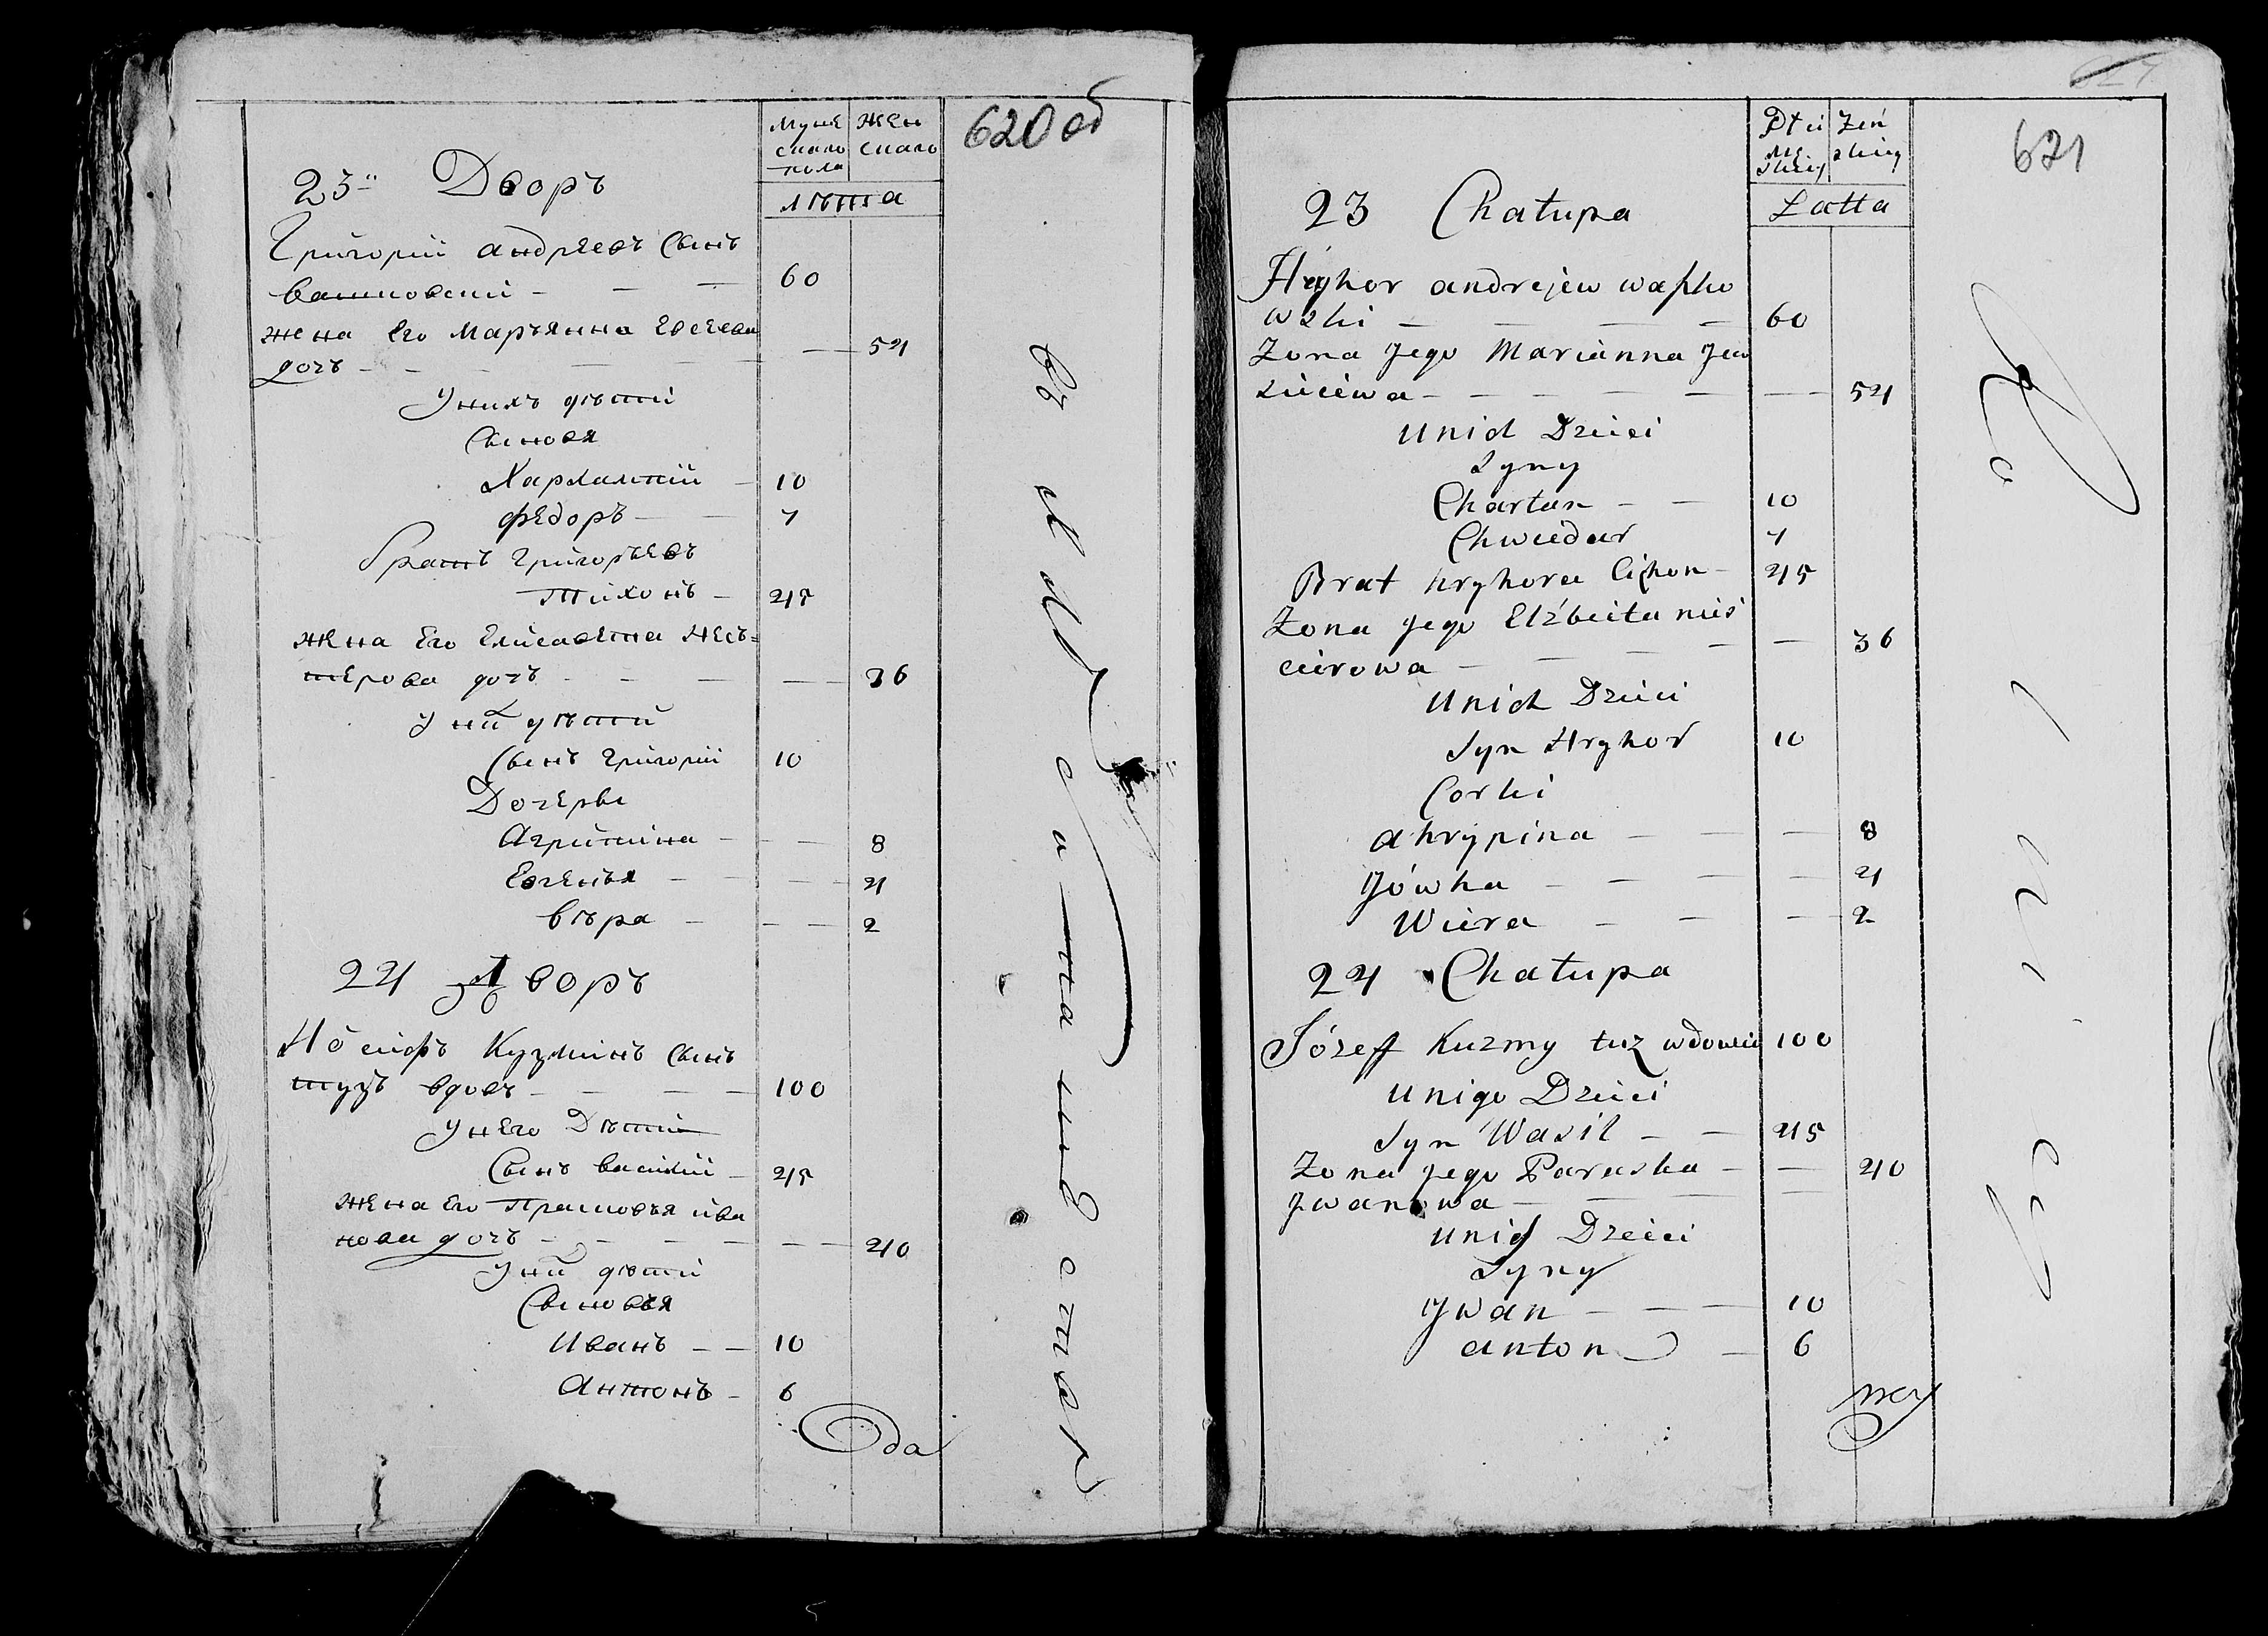 620 об
Муже
скаго
пола
Жен
скаго
лѣта
23й Дворъ
Григорій Андреевъ Сынъ
Вашковскй 60
жена Его Марьянна Евсеева
дочъ 54
У нихъ дѣти
Сыновя
Харлампій 10
Федоръ 7
Братъ Григорьевъ
Тихонъ 45
жена Его Елисавета Нес=
терова дочъ 36
У ни дѣти
Сынъ Григорій 10
Дочерьи
Агрипина 8
Евгенья 4
Вѣра 2
24 Дворъ
Іосифъ Кузминъ Сынъ
тузъ вдовъ 100
У него Дѣти
Сынъ Василий 45
жена Его Прасковья Ива
нова дочъ 40
У ни дѣти
Сыновья
Иванъ 10
Антонъ 6
621
Płci
Mę
skiey
Żeń
skiey
Łatta
23 Chałupa
Hryhor Andrejew waszko
wski 60
Żona Jego Marianna Jew
siejewa 54
U nich Dzieci
Syny
Charłan 10
Chwiedor 7
Brat Hryhora Cichon 45
Żona Jego Elżbieta nies
cierowa 36
U nich Dzieci
Syn Hryhor 10
Corki
Ahrypina 8
Jówka 4
Wiera 2
24 Chałupa
Józeff Kuzmy tuz wdowiec 100
U niego Dzieci
Syn Wasil 45
Żona Jego Paraska 40
Jwanowa
U nich Dzieci
Syny
Jwan 10
Anton 6